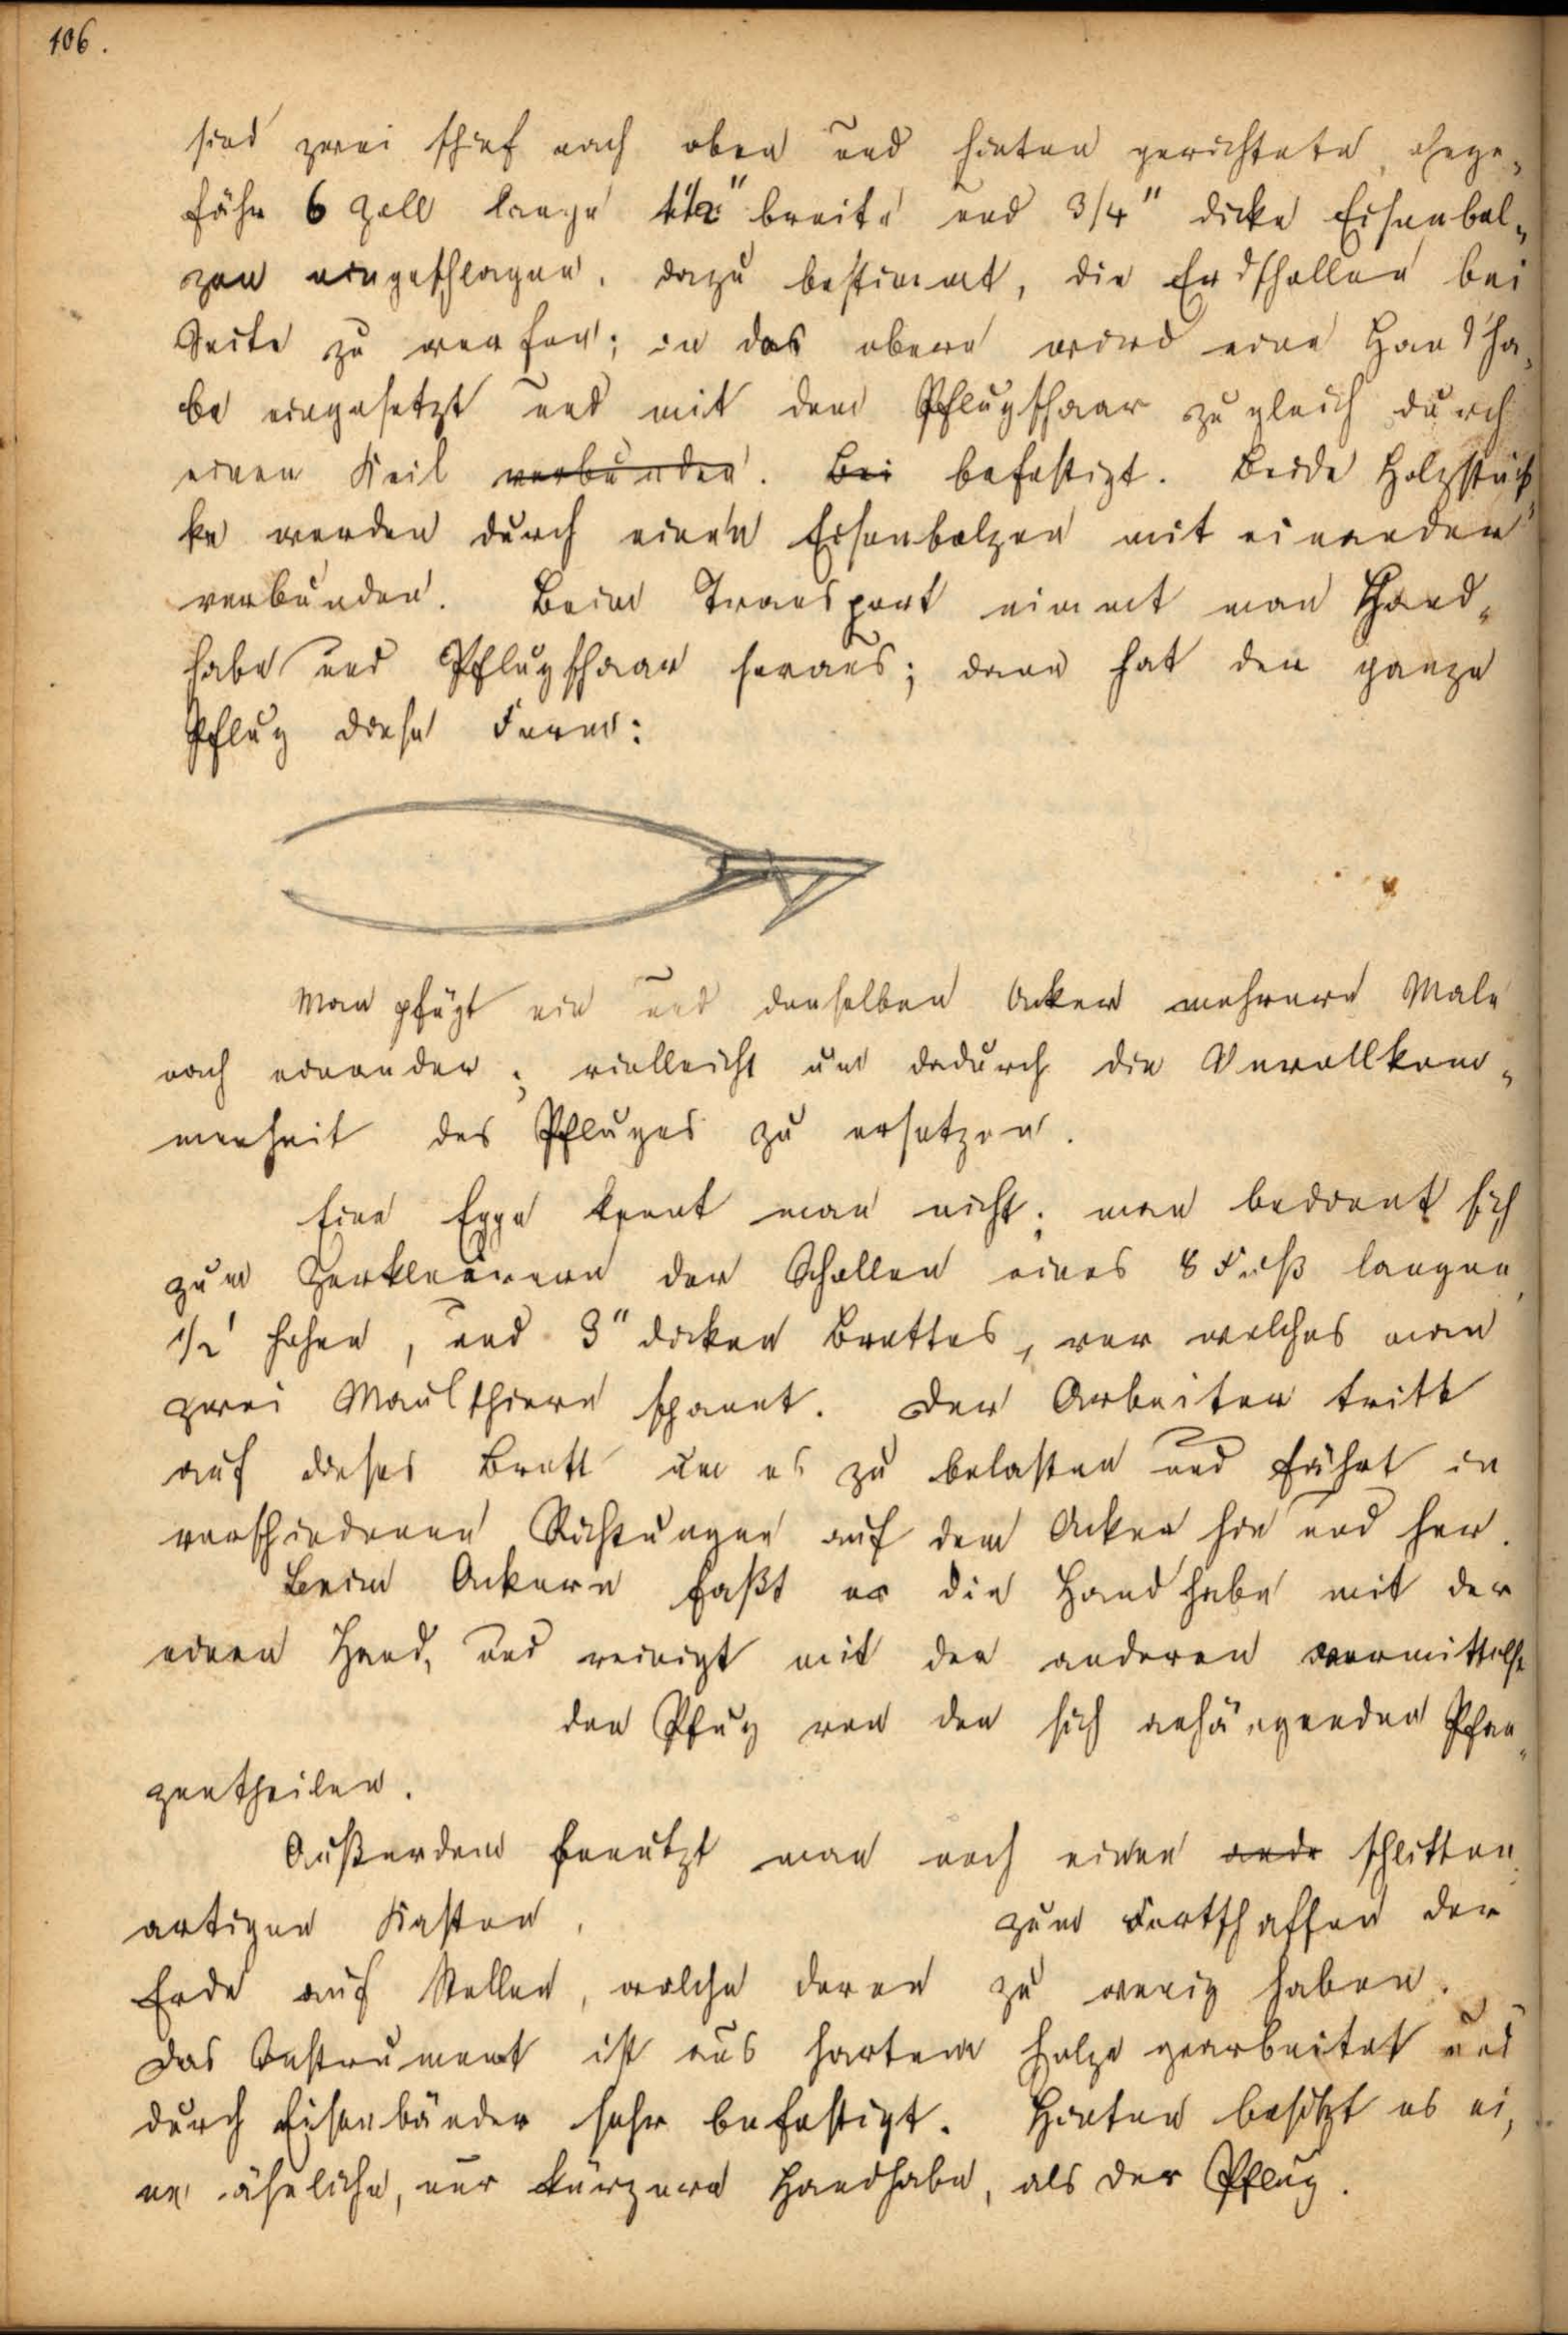 106.
sind zwei schief nach oben und hinten gerichtete, ohnge„
fähr 6 Zoll lange 1 1/2" breite und 3/4" dicke Eisenbol„
zen eingeschlagen, dazu bestimmt, die Erdschollen bei
Seite zu werfen; in das obere wird eine Handha„
be eingesetzt und mit dem Pflugschaar zugleich durch
einen Keil verbunden. Bei befestigt. Beide Holzstük„
ke werden durch einen Eisenbolzen mit einander
verbunden. Beim Transport nimmt man Hand„
habe und Pflugschaar heraus; dann hat der ganze
Pflug diese Form:
Man pfügt ein und denselben Acker mehrere Male
nach einander; vielleicht um dadurch die Unvollkom„
menheit des Pfluges zu ersetzen.
Eine Egge kennt man nicht; man bedient sich
zum Zerkleinern der Schollen eines 8 Fuß langen,
1/2' hohen, und 3" dicken Brettes, vor welches man
zwei Maulthiere spannt. Der Arbeiter tritt
auf dieses Brett um es zu belasten und fährt in
verschiedenen Richtungen auf dem Acker hin und her.
Beim Ackern faßt er die Handhabe mit der
einen Hand, und reinigt mit der anderen vermittelst
den Pfug von den sich anhängenden Pflan„
zentheilen.
Außerdem benutzt man noch einen ande schlitten„
artigen Kasten, zum Fortschaffen der
Erde auf Stellen, welche deren zu wenig haben.
Das Instrument ist aus hartem Holze gearbeitet und
durch Eisenbänder sehr befestigt. Hinten besitzt es ei„
ne ähnliche, nur kürzere Handhabe, als der Pflug.